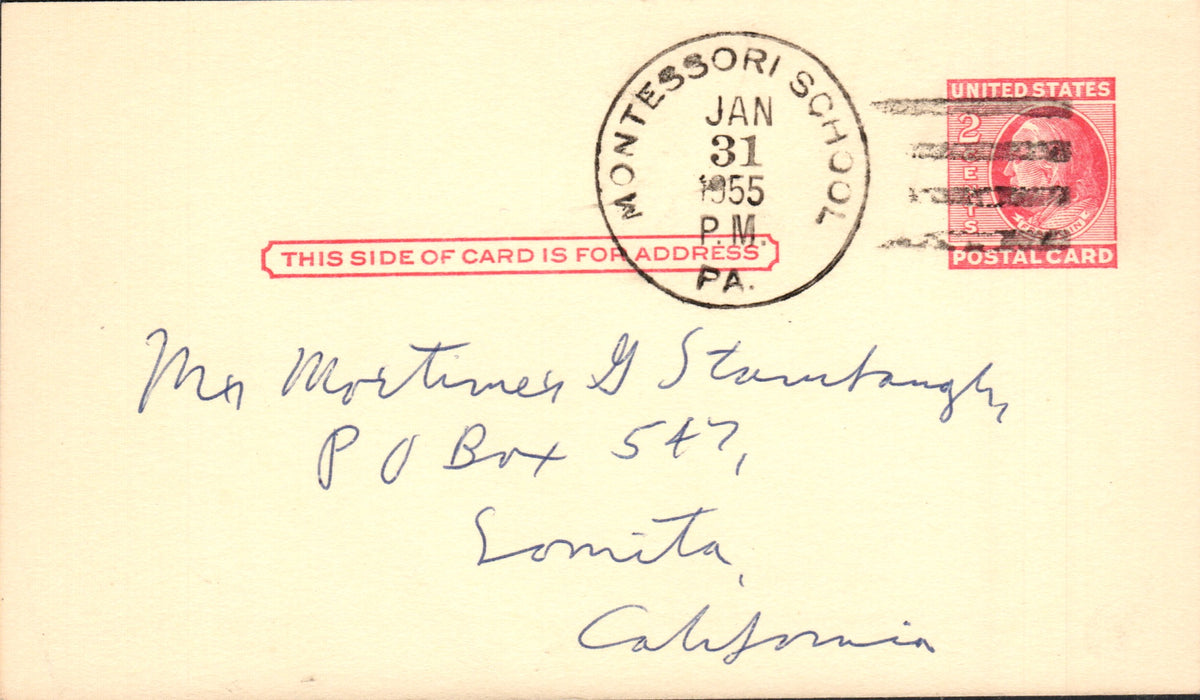 MONTESSORI SCHOOL
JAN
31
1955
P.M.
PA.
UNITED STATES
2
CENTS
FRANKLIN
POSTAL CARD
THIS SIDE OF CARD IS FOR ADDRESS
Mr Mortimer G Stambaugh,
P O Box 547,
Lomita,
California